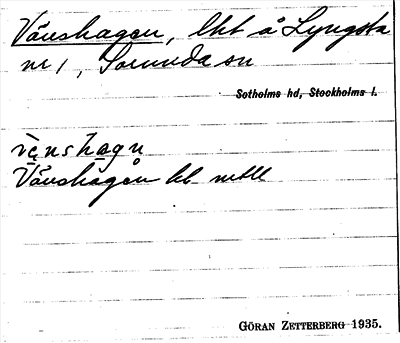 Vänshagen, lht å Lyngsta
nr 1, Sorunda sn
Sotholms hd, Stockholms l.
vɛnshagn
Vänshagen bl. mtll
GÖRAN ZETTERBERG 1935.